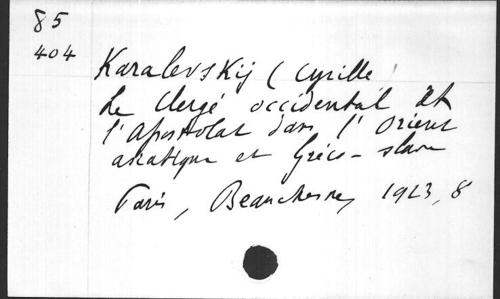 85
404
Karalevskij (Cyrille)
Le Clergé occidental et
l'apostolat dans l'Orient
asiatique et Gréco-slave
Paris, Beauchesne, 1923, 8